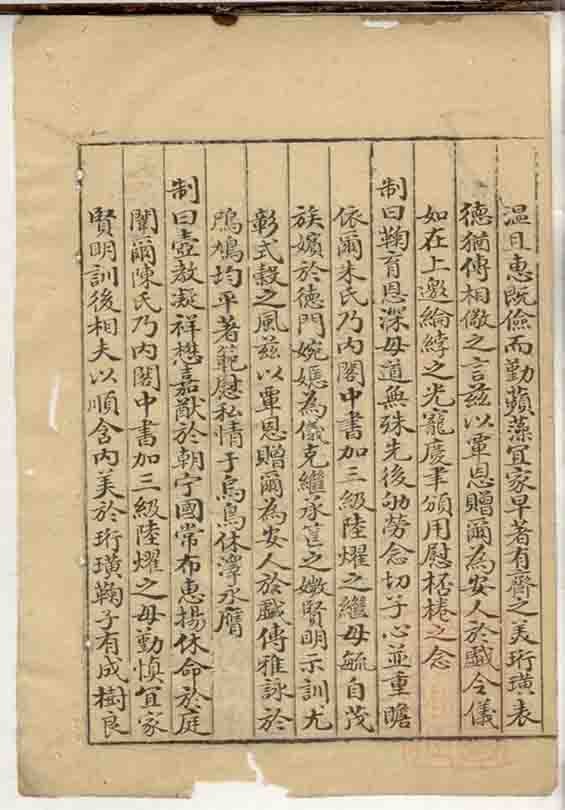 温且惠既儉而勤蘋藻宜家早著有齊之美珩璜表
德猶傳相儆之言茲以覃恩贈爾為安人於戲令儀
如在上邀綸綍之光寵慶聿頒用慰桮棬之念
制曰鞠育恩深母道無殊先後劬勞念切子心並重瞻
依爾朱氏乃内閣中書加三級陸燿之繼母毓自茂
族嬪於德門婉嫕為儀克繼承筐之媺賢明示訓尤
彰式穀之風茲以覃恩贈爾為安人於戲傳雅詠於
鳲鳩均平著範慰私情于烏鳥休澤丞膺
制曰壼教凝祥懋嘉猷於朝宁國常布惠揚休命於庭
闈爾陳氏乃内閣中書加三級陸燿之母勤慎宜家
賢明訓後相夫以順含内美於珩璜鞠子有成樹良